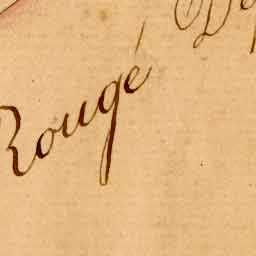 Rougé